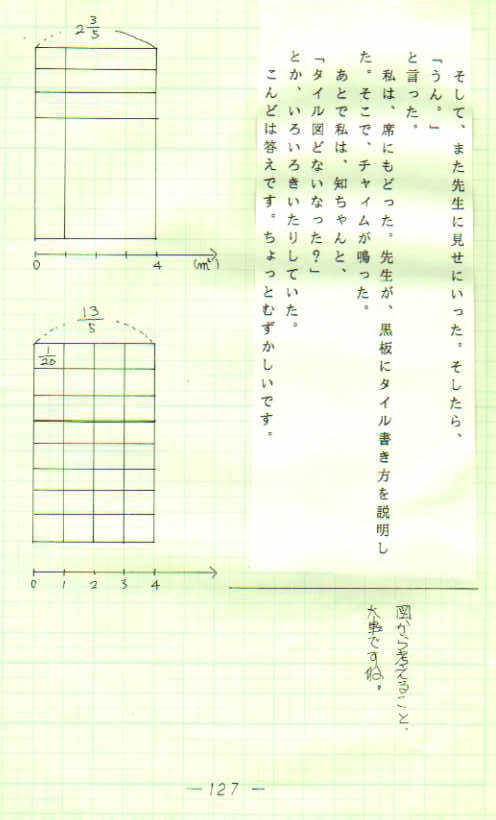 そして、また先生に見せにいった。そしたら、
「うん。」
と言った。
私は、席にもどった。先生が、黒板にタイル書き方を説明し
た。そこで、チャイムが鳴った。
あとで私は、知ちゃんと、
「タイル図どないなった?」
とか、いろいろきいたりしていた。
こんどは答えです。ちょっとむずかしいです。
2 3/5
0 4 (m²)
13/5
1/20
0 1 2 3 4
図から考えること、
大事ですね。
— 127 —